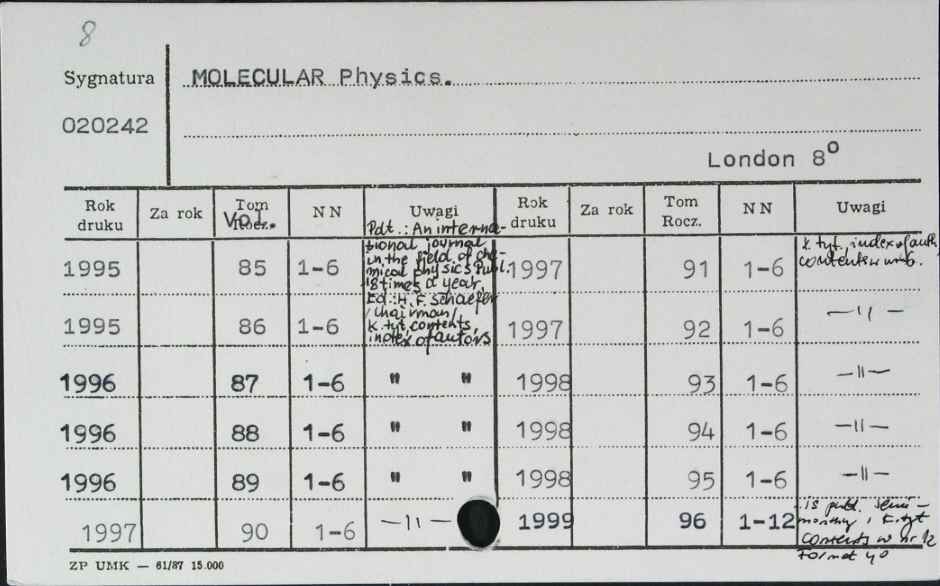 8
Sygnatura MOLECULAR Physics.
020242
London 8°
Rok druku Za rok Tom Rocz. Vol. NN Uwagi Rok druku Za rok Tom Rocz. NN Uwagi
Pdt.: An interna-
tional journal
in the field of che-
mical physics Publ.
18 times a year.
Ed.: H.F. Schaefer
/chairman/
K. tyt, contents,
index of autors
1995 85 1-6 1997 91 1-6 k. tyt. index of auth
contents w
1995 86 1-6 1997 92 1-6 -"-
1996 87 1-6 " " 1998 93 1-6 -"-
1996 88 1-6 " " 1998 94 1-6 -"-
1996 89 1-6 " " 1998 95 1-6 -"-
1997 90 1-6 -"- 1999 96 1-12 is publ. semi-
k. tyt
contents w nr 12
Format 4°
ZP UMK — 61/87 15.000